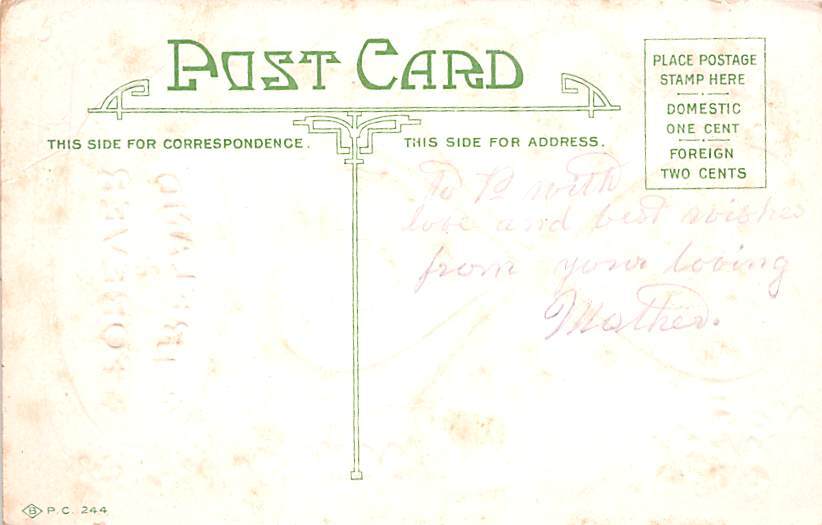 POST CARD
PLACE POSTAGE
STAMP HERE
DOMESTIC
ONE CENT
FOREIGN
TWO CENTS
THIS SIDE FOR CORRESPONDENCE.
THIS SIDE FOR ADDRESS.
To with
love and best wishes
from your loving
Mother.
FOREVER
IRELAND
B P.C. 244